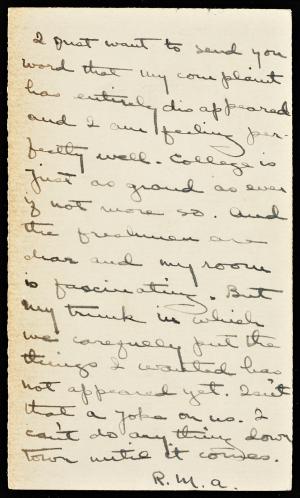 I just want to send you
word that my complaint
has entirely disappeared
and I am feeling per-
fectly well. College is
just as grand as ever
if not more so. And
the freshmen are
dear and my room
is fascinating. But
my trunk in which
we carefully put the
things I wanted has
not appeared yet. Isn't
that a joke on us. I
can't do any thing down
town until it comes.
R. M. A.